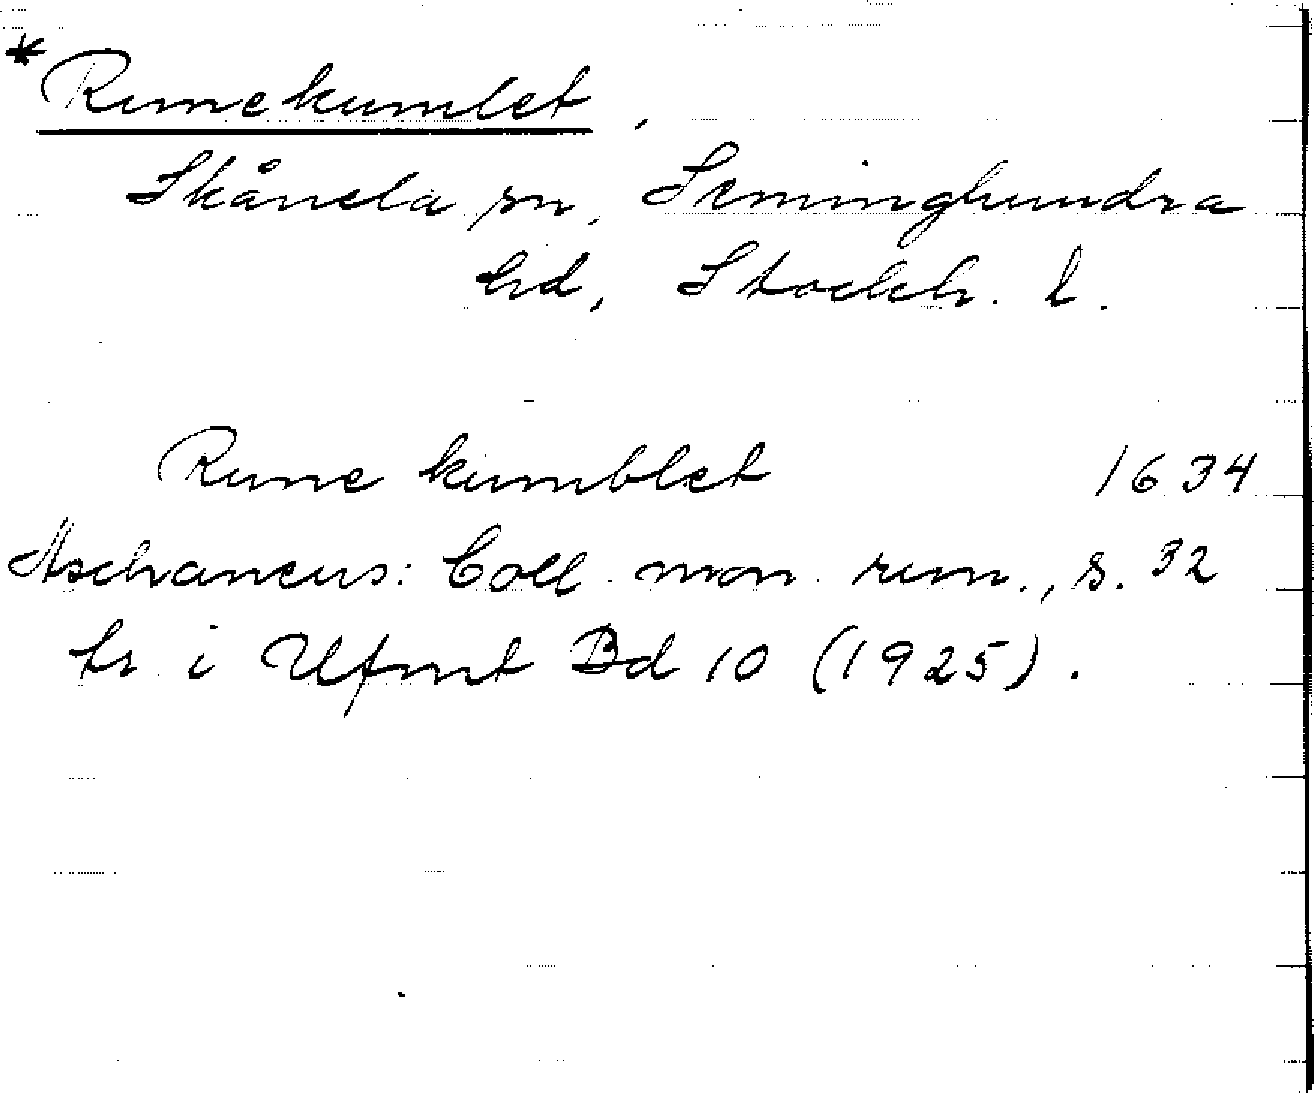 *Runekumlet,
Skånela sn, Seminghundra
hd, Stockh. l.
Rune kumblet 1634
Aschaneus: Coll. mon. run., s. 32
tr. i Ufmt Bd 10 (1925).